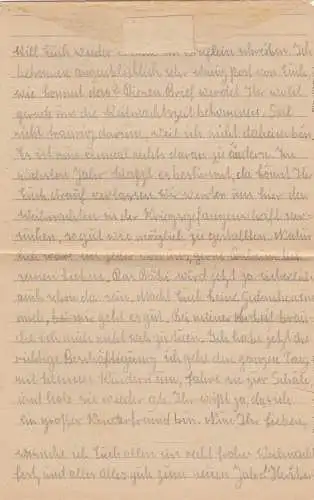 Will Euch wieder einmal ein schreiben. Ich
bekomme augenblicklich sehr wenig post von Euch,
wie kommt das? Diesen Brief werdet Ihr wohl
gerade um die Weihnachtszeit bekommen. Seid
nicht traurig darum, weil ich nicht daheim bin.
Es ist nun einmal nichts daran zu ändern. Im
nächsten Jahr klappt es bestimmt, da könnt Ihr
Euch drauf verlassen. Wir werden uns hier das
Weihnachten in der Kriegsgefangenschaft ver-
suchen, so gut wie möglich zu gestalten. Natür
lich wäre ein jeder von uns, gern bei
seinen Lieben. Das wird jetzt ja sicherlich
auch schon da sein. Macht Euch keine Gedanken um
mich, bei mir geht es gut. Bei meiner Arbeit brau-
che ich mich nicht weh zu tun. Ich habe jetzt die
richtige Beschäftigung, ich gehe den ganzen Tag
mit kleinen Kindern um, fahre sie zur Schule,
und hole sie wieder ab. Ihr wißt ja, das ich
ein großer Kinderfreund bin. Nun Ihr Lieben,
wünsche ich Euch allen ein recht frohes Weihnachts
fest, und alles Gute zum neuen Jahr.